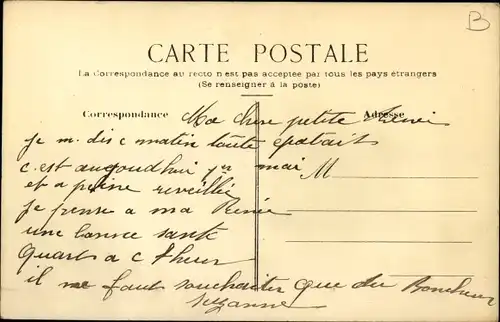 B
CARTE POSTALE
La Correspondance au recto n'est pas acceptée par tous les pays étrangers
(Se renseigner à la poste)
Correspondance
Adresse
Ma chere petite
je m dis c matin toute épatait
c est aujoudhui 1er mai
M
et a peine reveillée
je pense a ma Renée
une bonne santé
quarts a c
il me faut souhaiter que du Bonheur
Suzanne